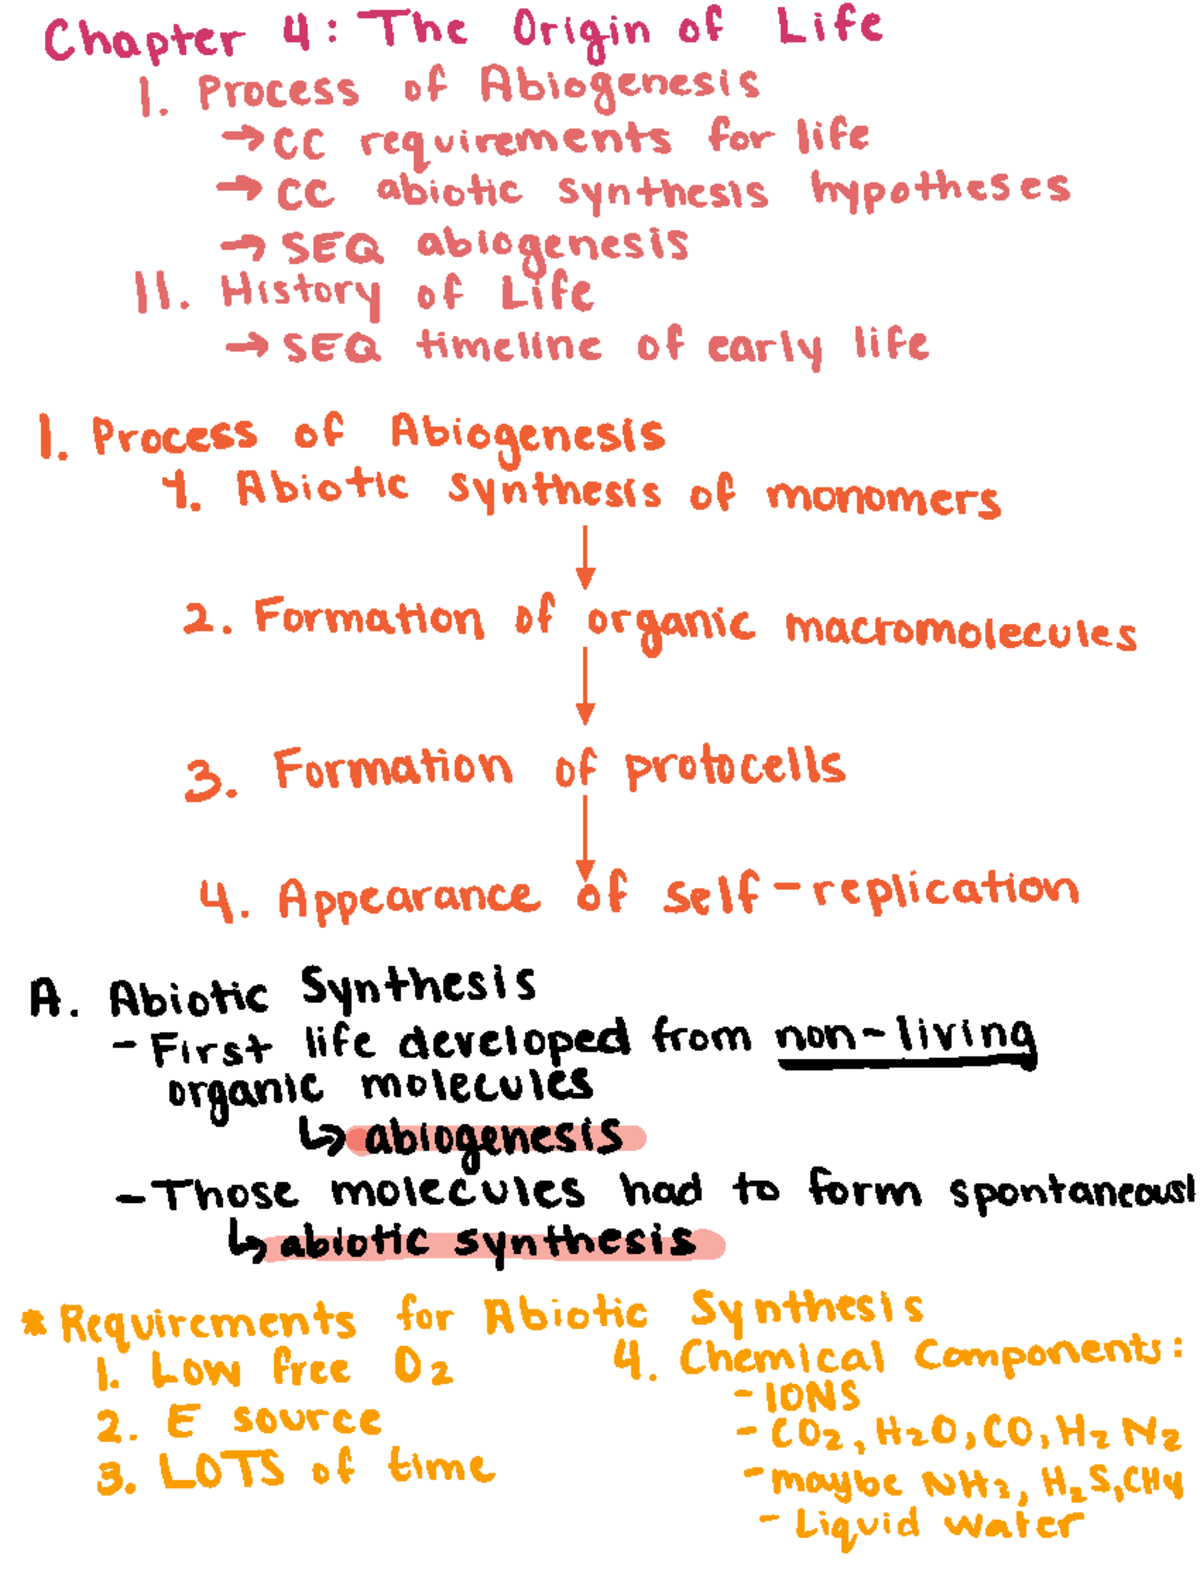 Chapter 4: The Origin of Life
I. Process of Abiogenesis
→ CC requirements for life
→ CC abiotic synthesis hypotheses
→ SEQ abiogenesis
II. History of Life
→ SEQ timeline of early life
I. Process of Abiogenesis
1. Abiotic synthesis of monomers
2. Formation of organic macromolecules
3. Formation of protocells
4. Appearance of self-replication
A. Abiotic Synthesis
- First life developed from non-living
organic molecules
↳ abiogenesis
- Those molecules had to form spontaneousl
↳ abiotic synthesis
* Requirements for Abiotic Synthesis
1. Low free O2
2. E source
3. LOTS of time
4. Chemical Components:
- IONS
- CO2, H2O, CO, H2 N2
- maybe NH3, H2S, CH4
- Liquid water